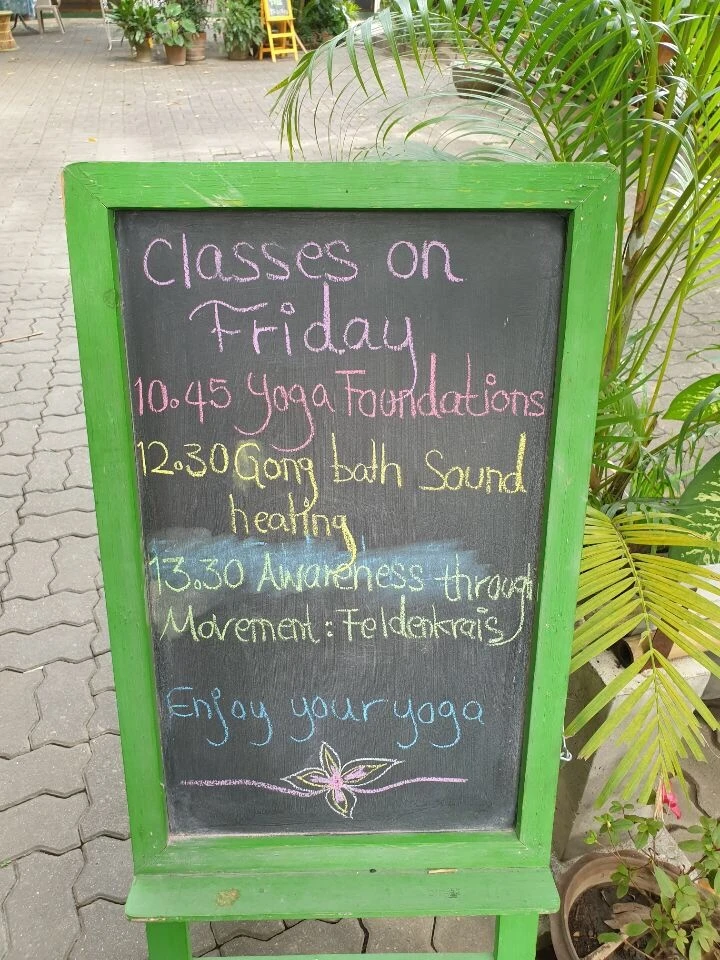 Classes on
Friday
10.45 Yoga Foundations
12.30 Gong bath Sound
healing
13.30 Awareness through
Movement: Feldenkrais
Enjoy your yoga